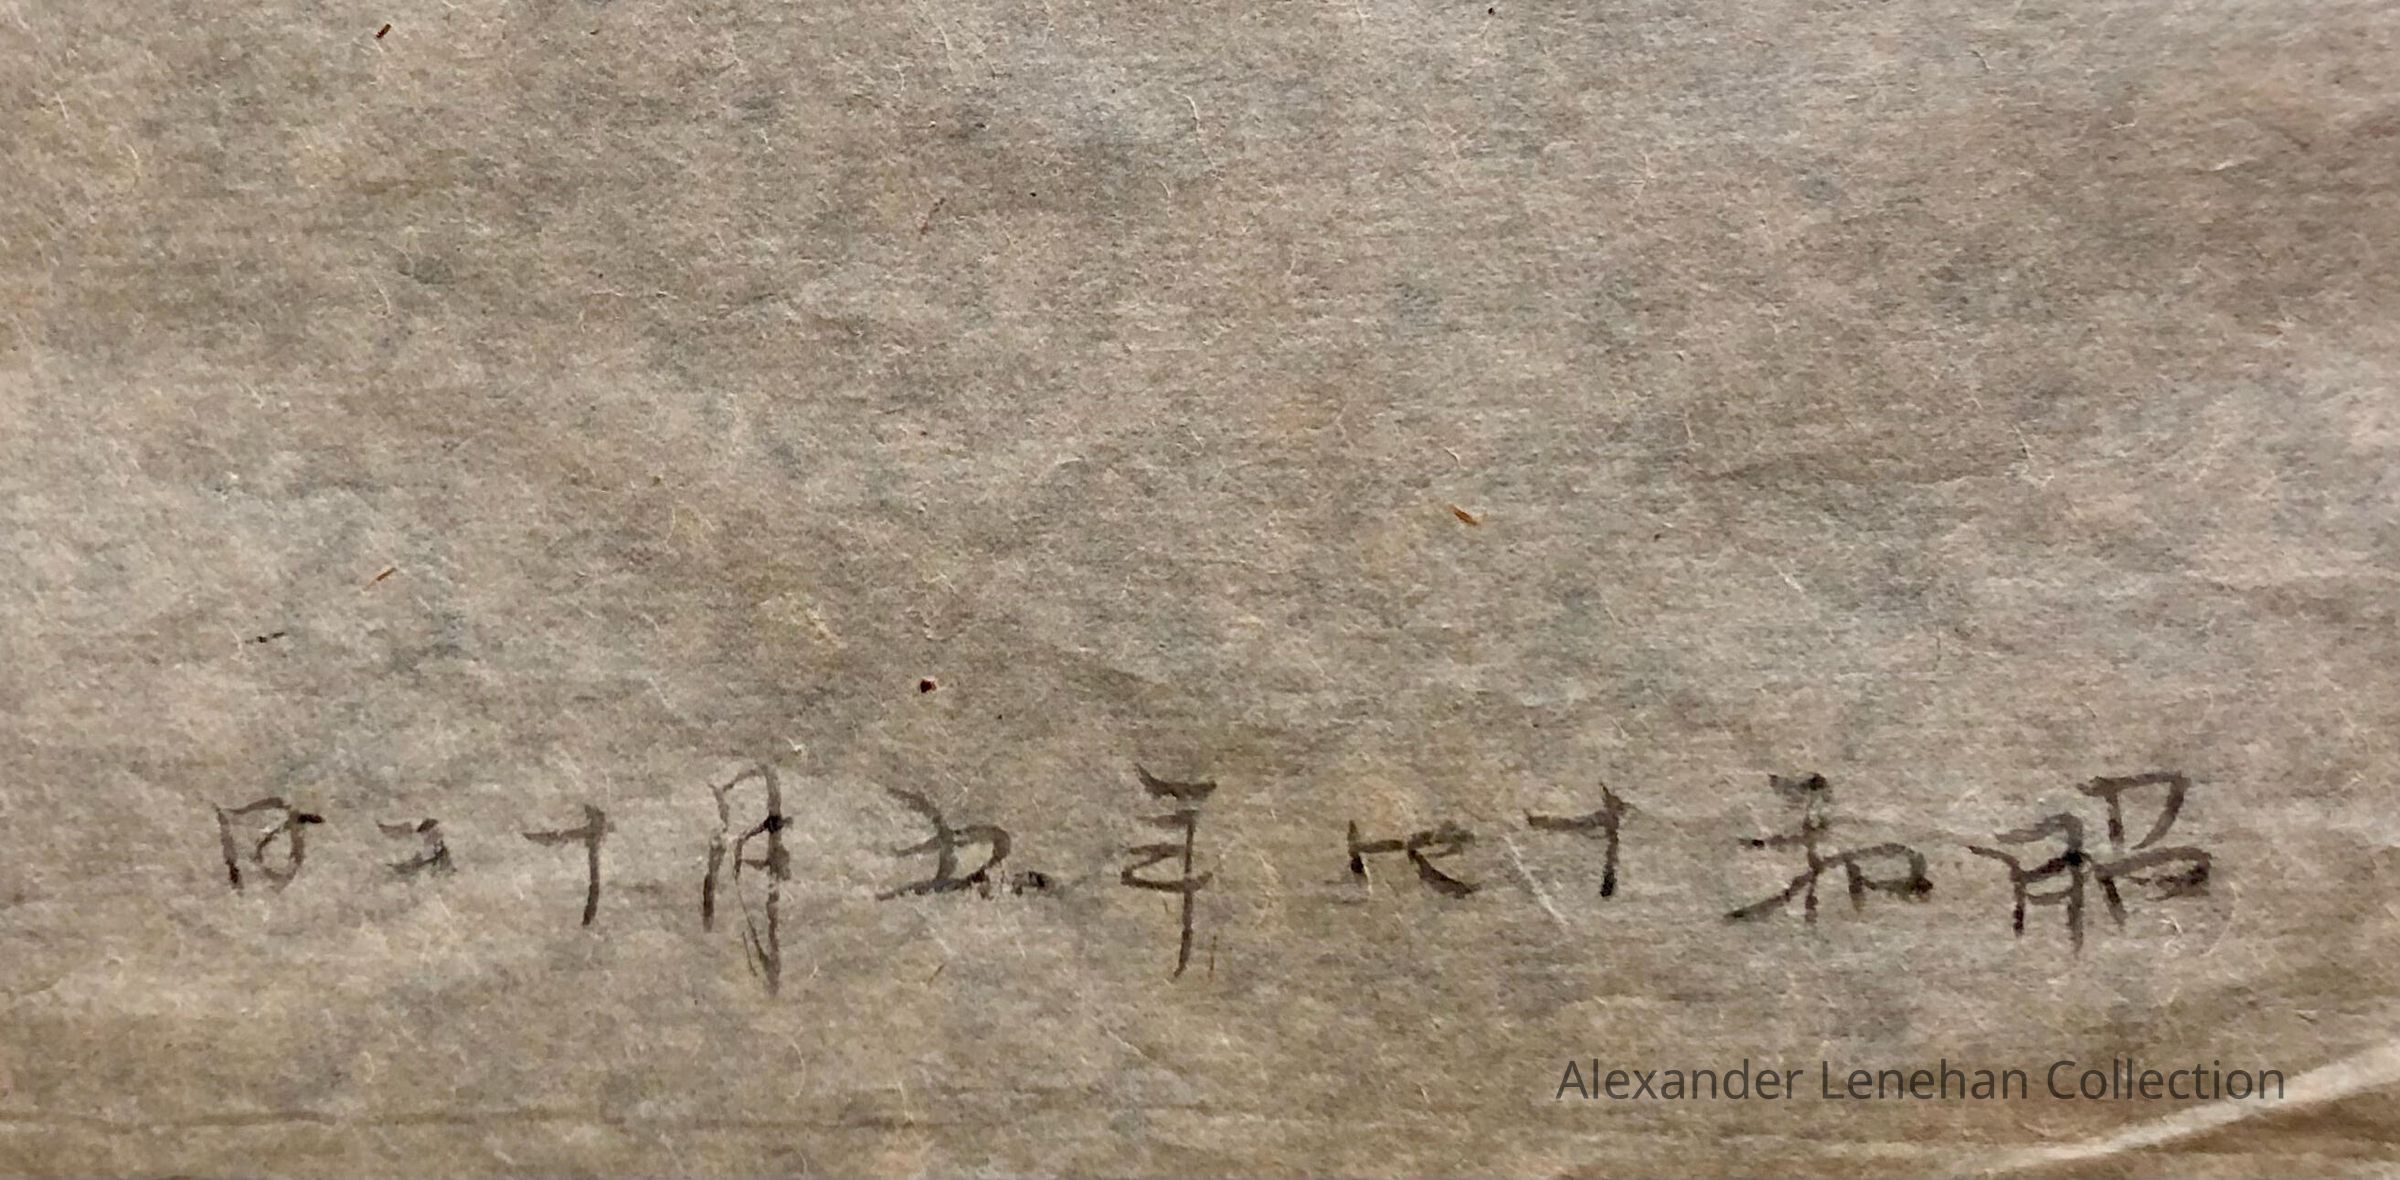 昭和十七年五月十二日
Alexander Lenehan Collection